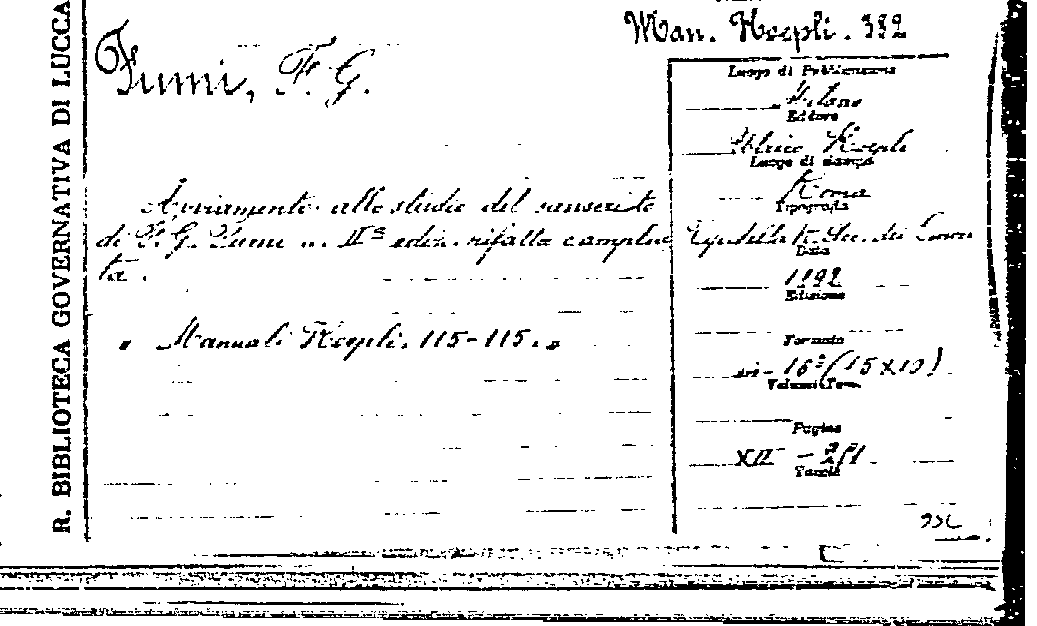 R. BIBLIOTECA GOVERNATIVA DI LUCCA
Man. Hoepli. 332
Fumi, F. G.
Avviamento allo studio del sanscrito
di F. G. Fumi IIª ediz. rifatta comple
ta.
" Manuali Hoepli. 115-115. "
Luogo di Pubblicazione
Milano
Editore
Ulrico Hoepli
Luogo di stampa
Roma
Tipografia
Tip. della R. Acc. dei Lincei
Data
1892
Edizione
Formato
in - 16º (15X10)
Volumi o Tomi
Pagine
XII -
Tavole